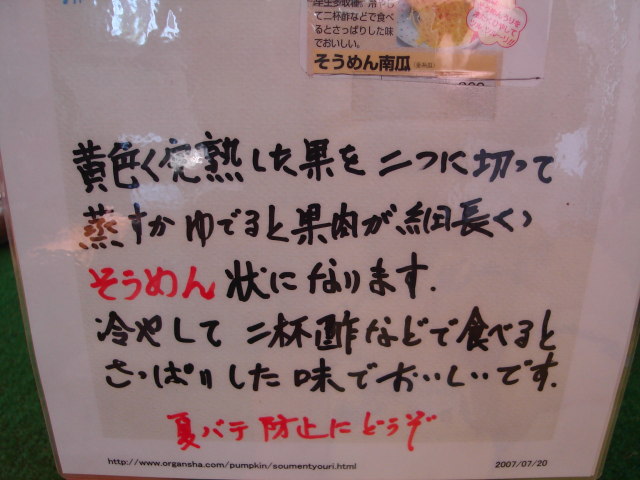 早生多収種。冷やし
て二杯酢などで食べ
るとさっぱりした味
でおいしい。
そうめん南瓜
黄色く完熟した果を二つに切って
蒸すかゆでると果肉が細長く
そうめん状になります.
冷やして二杯酢などで食べると
さっぱりした味でおいしいです.
夏バテ防止にどうぞ
http://www.organsha.com/pumpkin/soumentyouri.html
2007/07/20